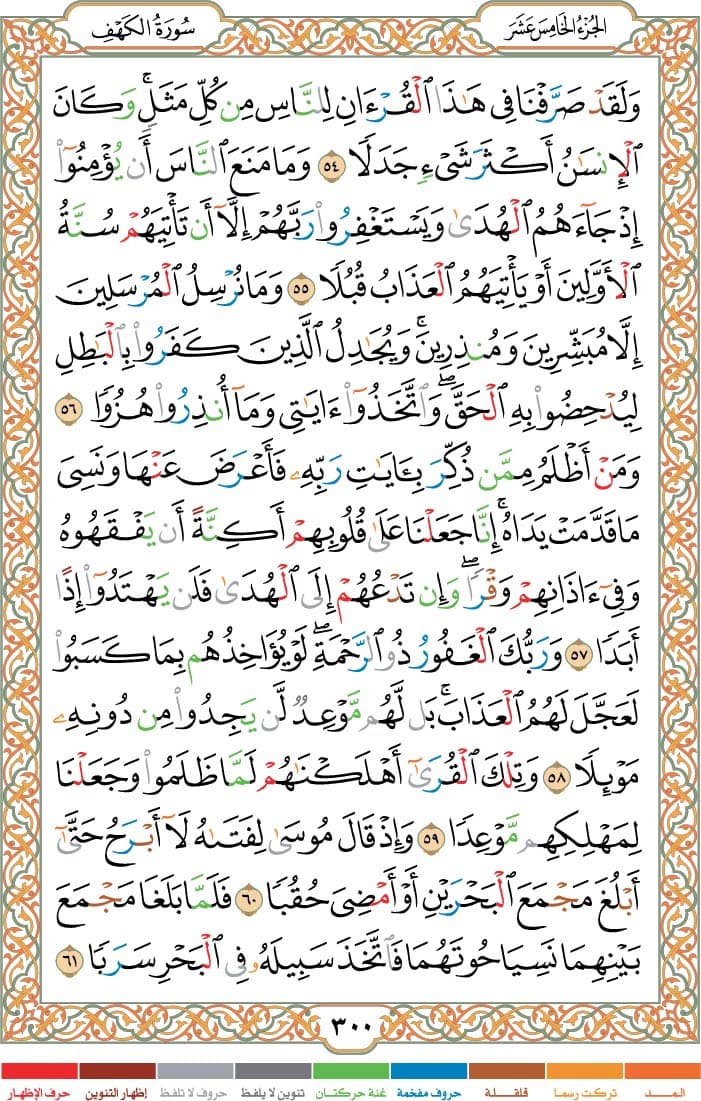 الجزء الخامس عشر
سورة الكهف
وَلَقَدۡ صَرَّفۡنَا فِي هَٰذَا ٱلۡقُرۡءَانِ لِلنَّاسِ مِن كُلِّ مَثَلٖۚ وَكَانَ
ٱلۡإِنسَٰنُ أَكۡثَرَ شَيۡءٖ جَدَلٗا ٥٤ وَمَا مَنَعَ ٱلنَّاسَ أَن يُؤۡمِنُوٓاْ
إِذۡ جَآءَهُمُ ٱلۡهُدَىٰ وَيَسۡتَغۡفِرُواْ رَبَّهُمۡ إِلَّآ أَن تَأۡتِيَهُمۡ سُنَّةُ
ٱلۡأَوَّلِينَ أَوۡ يَأۡتِيَهُمُ ٱلۡعَذَابُ قُبُلٗا ٥٥ وَمَا نُرۡسِلُ ٱلۡمُرۡسَلِينَ
إِلَّا مُبَشِّرِينَ وَمُنذِرِينَۚ وَيُجَٰدِلُ ٱلَّذِينَ كَفَرُواْ بِٱلۡبَٰطِلِ
لِيُدۡحِضُواْ بِهِ ٱلۡحَقَّۖ وَٱتَّخَذُوٓاْ ءَايَٰتِي وَمَآ أُنذِرُواْ هُزُوٗا ٥٦
وَمَنۡ أَظۡلَمُ مِمَّن ذُكِّرَ بِـَٔايَٰتِ رَبِّهِۦ فَأَعۡرَضَ عَنۡهَا وَنَسِيَ
مَا قَدَّمَتۡ يَدَاهُۚ إِنَّا جَعَلۡنَا عَلَىٰ قُلُوبِهِمۡ أَكِنَّةً أَن يَفۡقَهُوهُ
وَفِيٓ ءَاذَانِهِمۡ وَقۡرٗاۖ وَإِن تَدۡعُهُمۡ إِلَى ٱلۡهُدَىٰ فَلَن يَهۡتَدُوٓاْ إِذًا
أَبَدٗا ٥٧ وَرَبُّكَ ٱلۡغَفُورُ ذُو ٱلرَّحۡمَةِۖ لَوۡ يُؤَاخِذُهُم بِمَا كَسَبُواْ
لَعَجَّلَ لَهُمُ ٱلۡعَذَابَۚ بَل لَّهُم مَّوۡعِدٞ لَّن يَجِدُواْ مِن دُونِهِۦ
مَوۡئِلٗا ٥٨ وَتِلۡكَ ٱلۡقُرَىٰٓ أَهۡلَكۡنَٰهُمۡ لَمَّا ظَلَمُواْ وَجَعَلۡنَا
لِمَهۡلِكِهِم مَّوۡعِدٗا ٥٩ وَإِذۡ قَالَ مُوسَىٰ لِفَتَىٰهُ لَآ أَبۡرَحُ حَتَّىٰٓ
أَبۡلُغَ مَجۡمَعَ ٱلۡبَحۡرَيۡنِ أَوۡ أَمۡضِيَ حُقُبٗا ٦٠ فَلَمَّا بَلَغَا مَجۡمَعَ
بَيۡنِهِمَا نَسِيَا حُوتَهُمَا فَٱتَّخَذَ سَبِيلَهُۥ فِي ٱلۡبَحۡرِ سَرَبٗا ٦١
٣٠٠
المــد تركت رسما قلقــلة حروف مفخمة غنة حركتان تنوين لا يلفظ حروف لا تلفظ إظهار التنوين حرف الإظهار